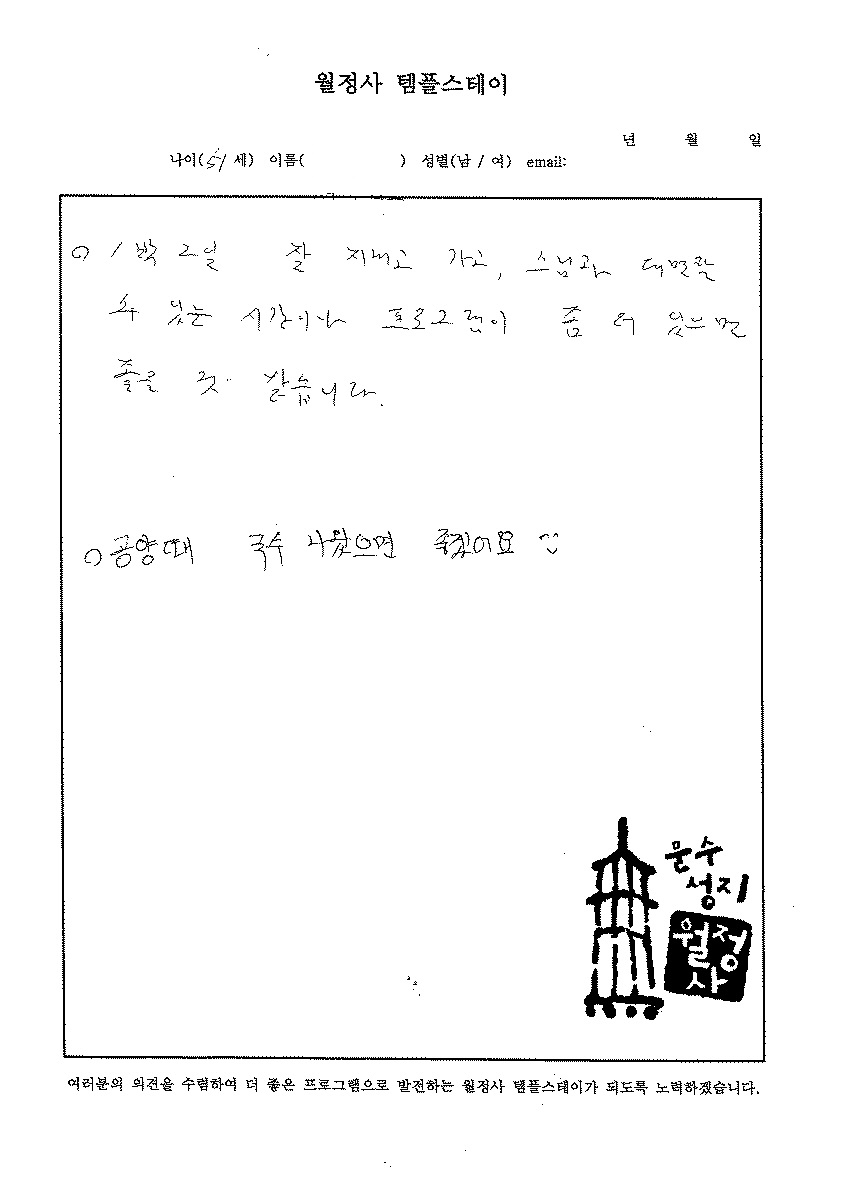 월정사 템플스테이
년 월 일
나이(51세) 이름( )성별(남 / 여) email:
○ 1박 2일 잘 지내고 가고, 스님과 대면할
수 있는 시간이나 프로그램이 좀 더 있으면
좋을 것 같습니다.
○ 공양때 국수 나왔으면 좋겠어요 :)
문수
성지
월정
사
여러분의 의견을 수렴하여 더 좋은 프로그램으로 발전하는 월정사 템플스테이가 되도록 노력하겠습니다.